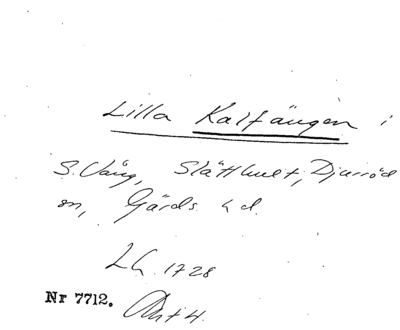 Lilla Kalfängen i
S. Vång, Slätthult, Djurröd
sn, Gärds hd.
LG. 1728
Nr 7712. Akt 4.